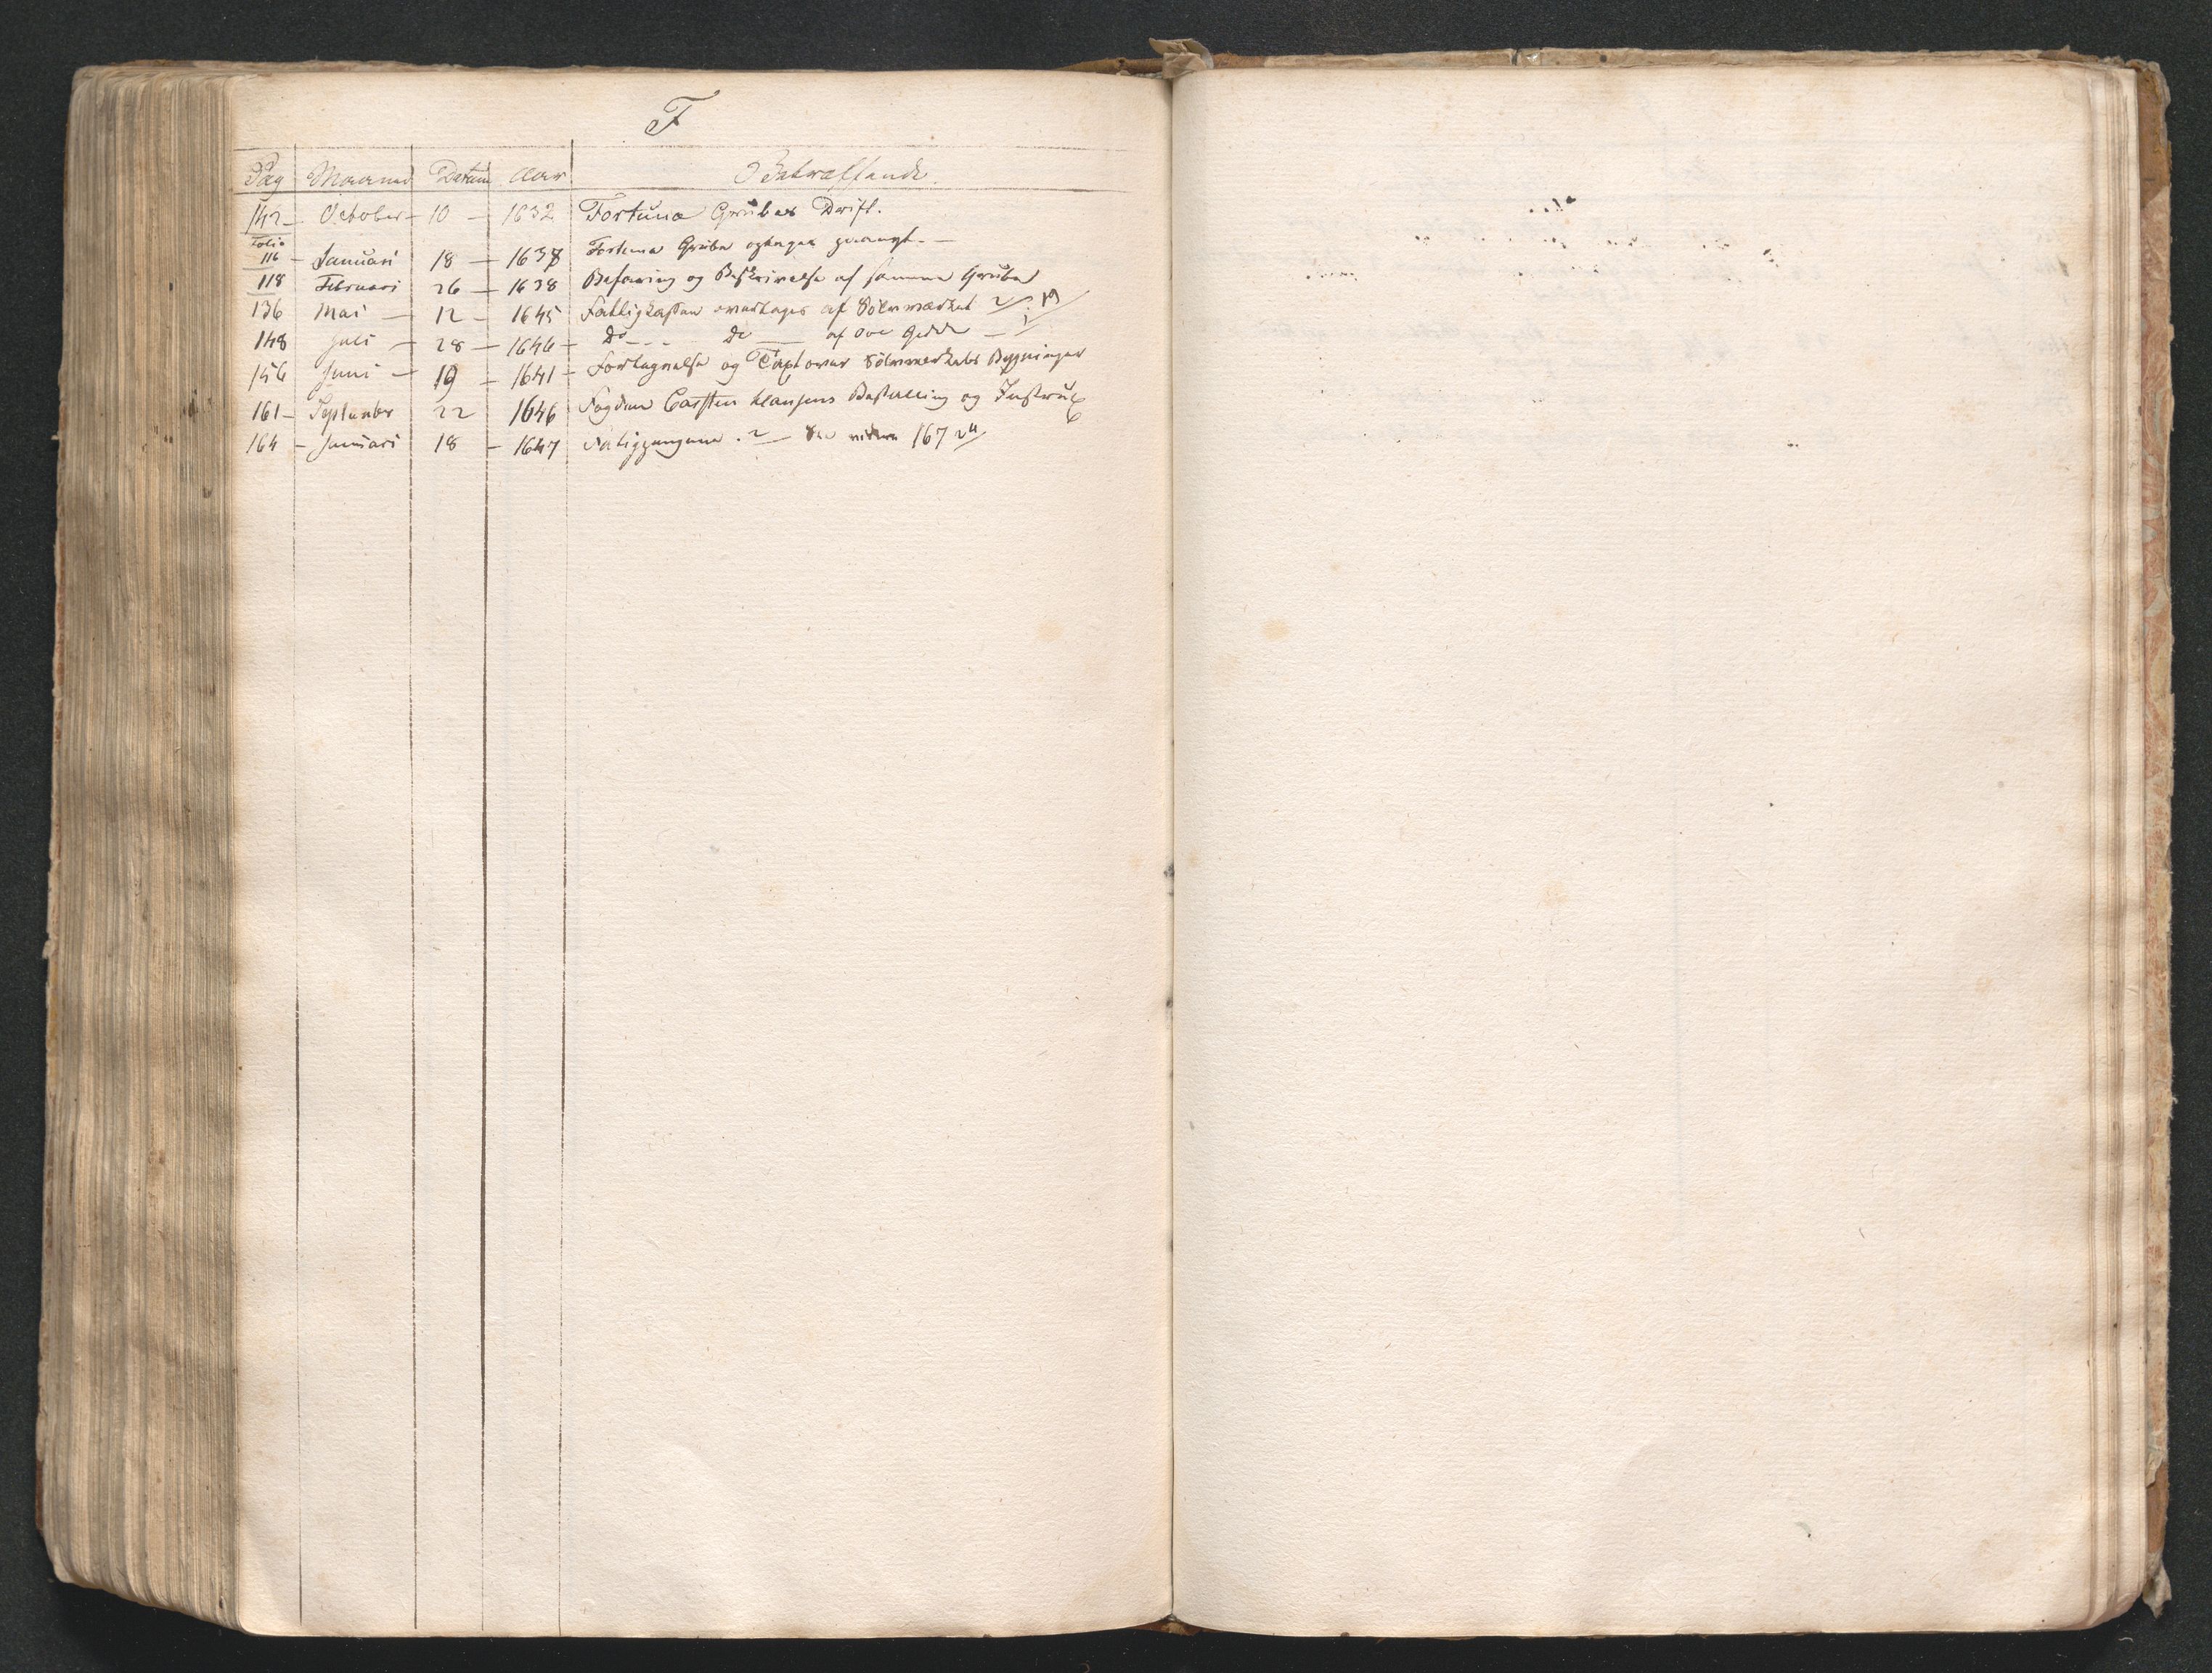 F
Pag Maaned Datum Aar Betræffende.
142 – October – 10 – 1632 Fortuna Grubes Drift.
Folio
116 – Januari 18 – 1638 Fortuna Grube optages –
118 Februari 26 – 1638 Befaring og Beskrivelse af samme Grube
136 Mai – 12 – 1645 Fattigkassen overtages af Sölvværket
148 Juli – 28 – 1646 – Do – – – Do – af Ove Gedde –
156 Juni – 19 – 1641 – Fortegnelse og Taxt over Sölvværkets Bygninger
161 – September 22 1646 Fogden Carsten Clausens Bestalling og Instrux
164 – Januari 18 – 1647 Fatigpungene. 167